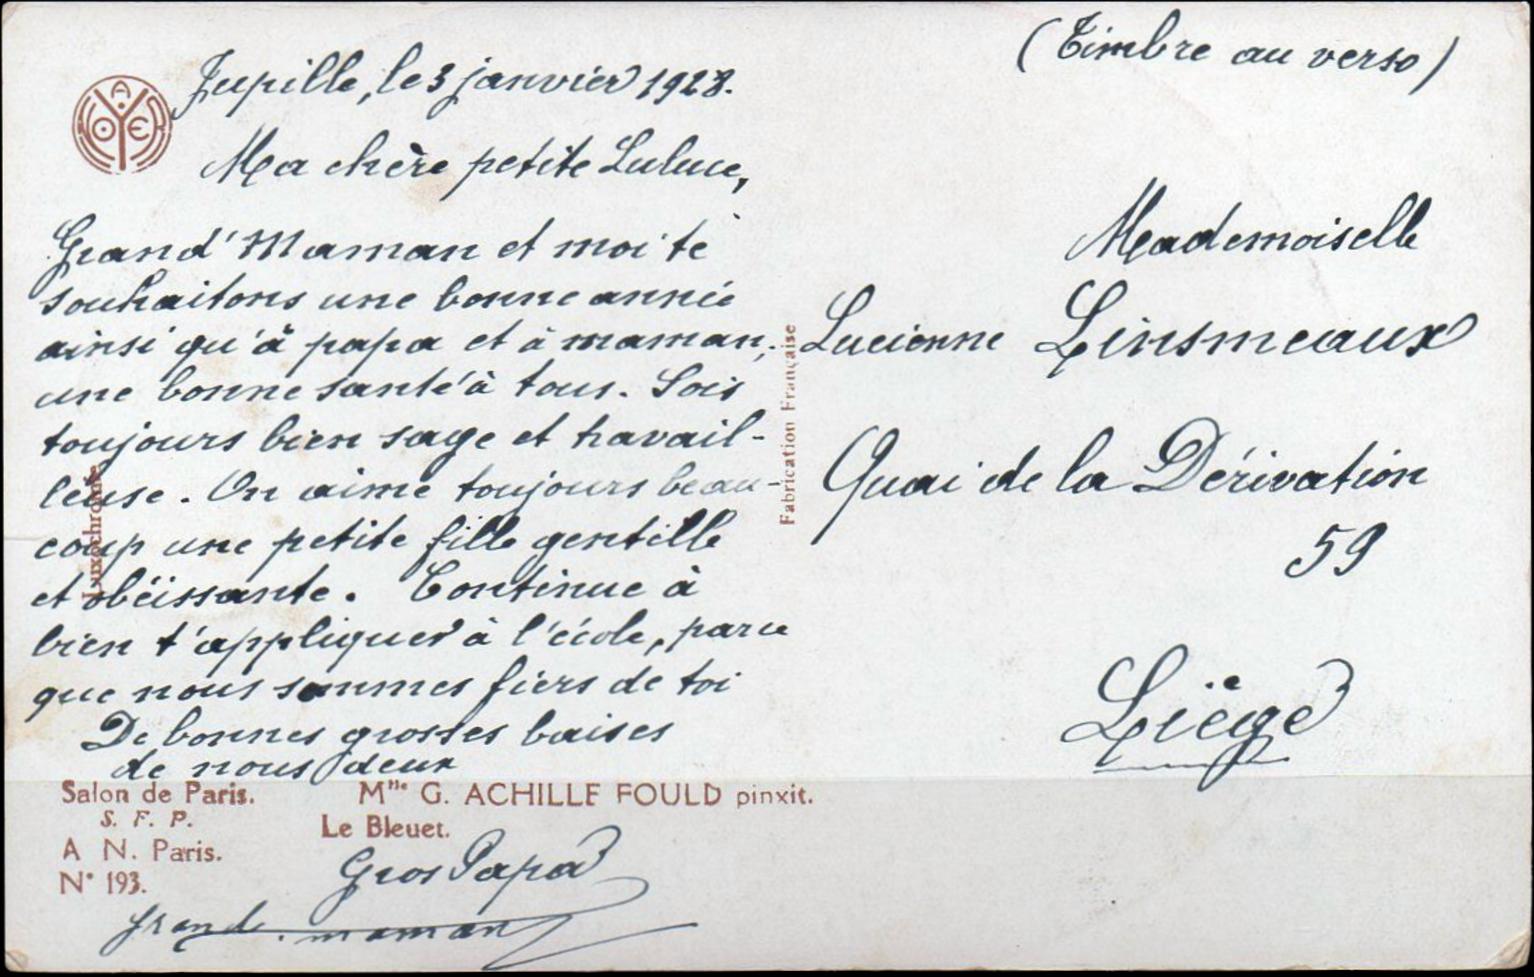 (Timbre au verso)
Jupille, le 3 janvier 1928.
Ma chère petite Lulue,
Grand'Maman et moi te
souhaitons une bonne année
ainsi qu'à papa et à maman,
une bonne santé à tous. Sois
toujours bien sage et travail-
leuse. On aime toujours beau-
coup une petite fille gentille
et obéissante. Continue à
bien t'appliquer à l'école, parce
que nous sommes fiers de toi
De bonnes grosses baises
de nous deux
Gros Papa
Grand-maman
Mademoiselle
Lucienne Linsmeaux
Quai de la Dérivation
59
Liège
NOYER
A
Luxochrome
Fabrication Française
Salon de Paris.
S. F. P.
A N. Paris.
N° 193.
Mlle G. ACHILLE FOULD pinxit.
Le Bleuet.